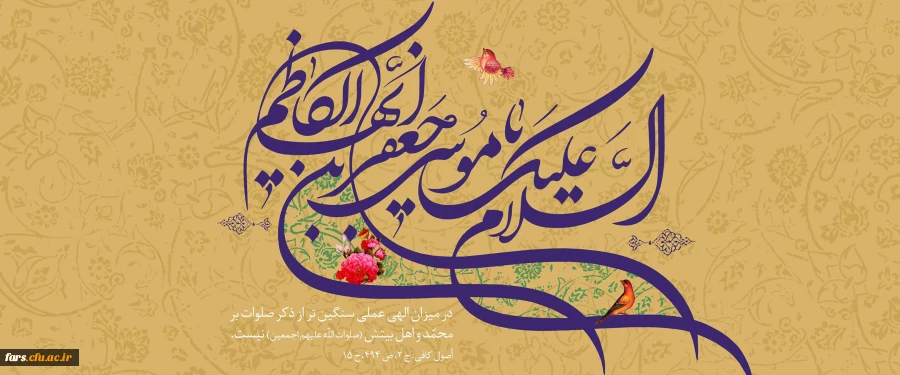 السلام علیک یا موسی بن جعفر ایها الکاظم
در میزان الهی عملی سنگین تر از ذکر صلوات بر
محمّد و اهل بیتش (صلوات الله علیهم اجمعین) نیست.
اصول کافی: ج ۲، ص ۴۹۴، ح ۱۵
fars.cfu.ac.ir